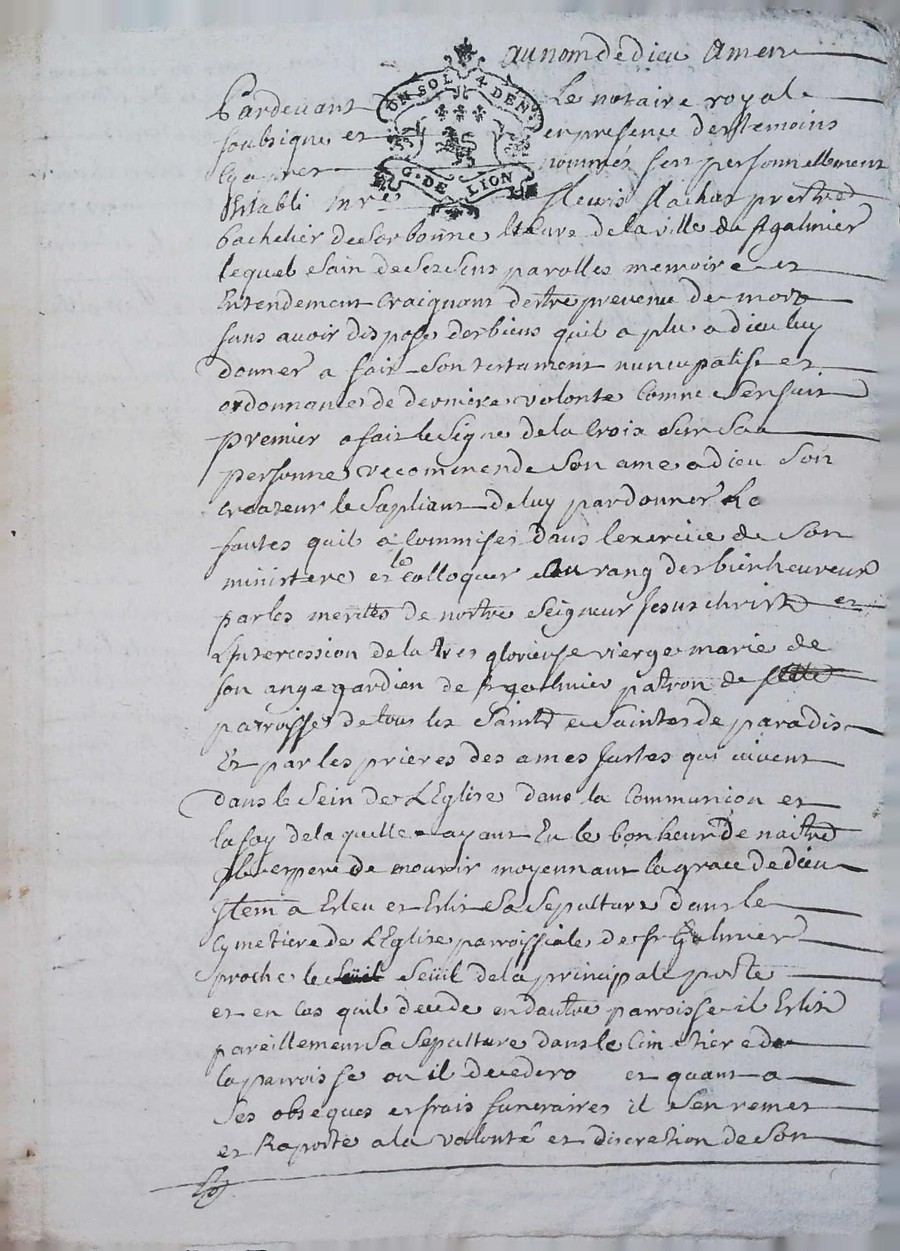 au nom de dieu Amen
UN SOL 4 DEN.
G. DE LION
Pardevant Le notaire royal
soubsigné et en presence des temoins
cy apres nommés fut personnellement
Establi mre fleuris flachat prestre
bachelier de sorbonne curé de la ville de st galmier
lequel sain de ses sens parolles memoire et
Entendement Craignant destre prevenu de mort
sans avoir disposé des biens quil a plu a dieu luy
donner a fait son testament nuncupatif et
ordonnance de derniere volonté Comme s'ensuit
premier a fait le signe de la Croix sur saa
personne recommende son ame a dieu son
Createur le supliant de luy pardonner les
fautes quil a Commises dans lexercice de son
ministere et le Colloquer au rang des bienheureux
par les merites de nostre seigneur Jesus christ et
Lintercession de la tres glorieuse vierge marie de
son ange gardien de st galmier patron de
parroisse de tous les saints et saintes de paradis
Et par les prieres des ames justes qui vivent
dans le sein de L'Eglise dans la Communion et
la foy de laquelle ayant Eu le bonheur de naitre
il espere de mourir moyennant la grace de dieu
Item a Esleu et Eslit sa sepulture dans le
Cymetiere de L'Eglise parroissiale de st Galmier
proche le seüil seüil de la principale porte
et en Cas quil decede en dautre parroisse il Eslit
pareillement sa sepulture dans le Cimetiere de
la parroisse ou il decedera et quant a
ses obseques et frais funeraires il s'en remet
et Raporte a la volonté et discretion de son